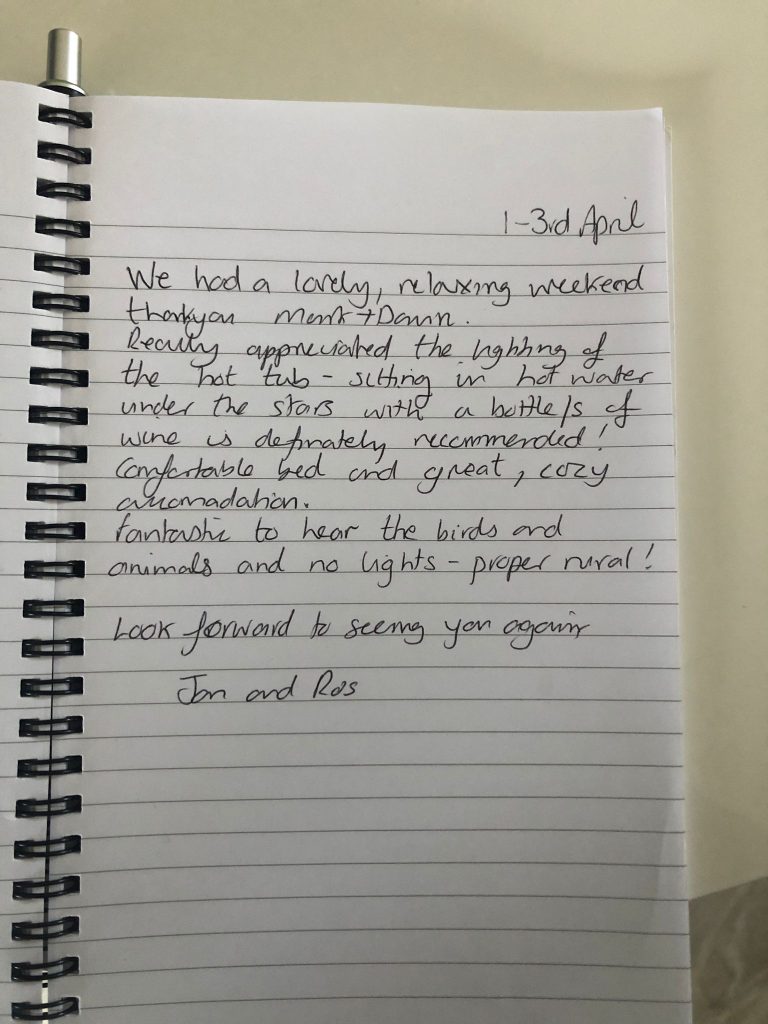 1-3rd April
We had a lovely, relaxing weekend
thankyou Mark + Dawn.
Really appreciated the lighting of
the hot tub - sitting in hot water
under the stars with a bottle/s of
wine is definately recommended!
Comfortable bed and great, cozy
accomadation.
Fantastic to hear the birds and
animals and no lights - proper rural!
Look forward to seeing you again
Jon and Ros